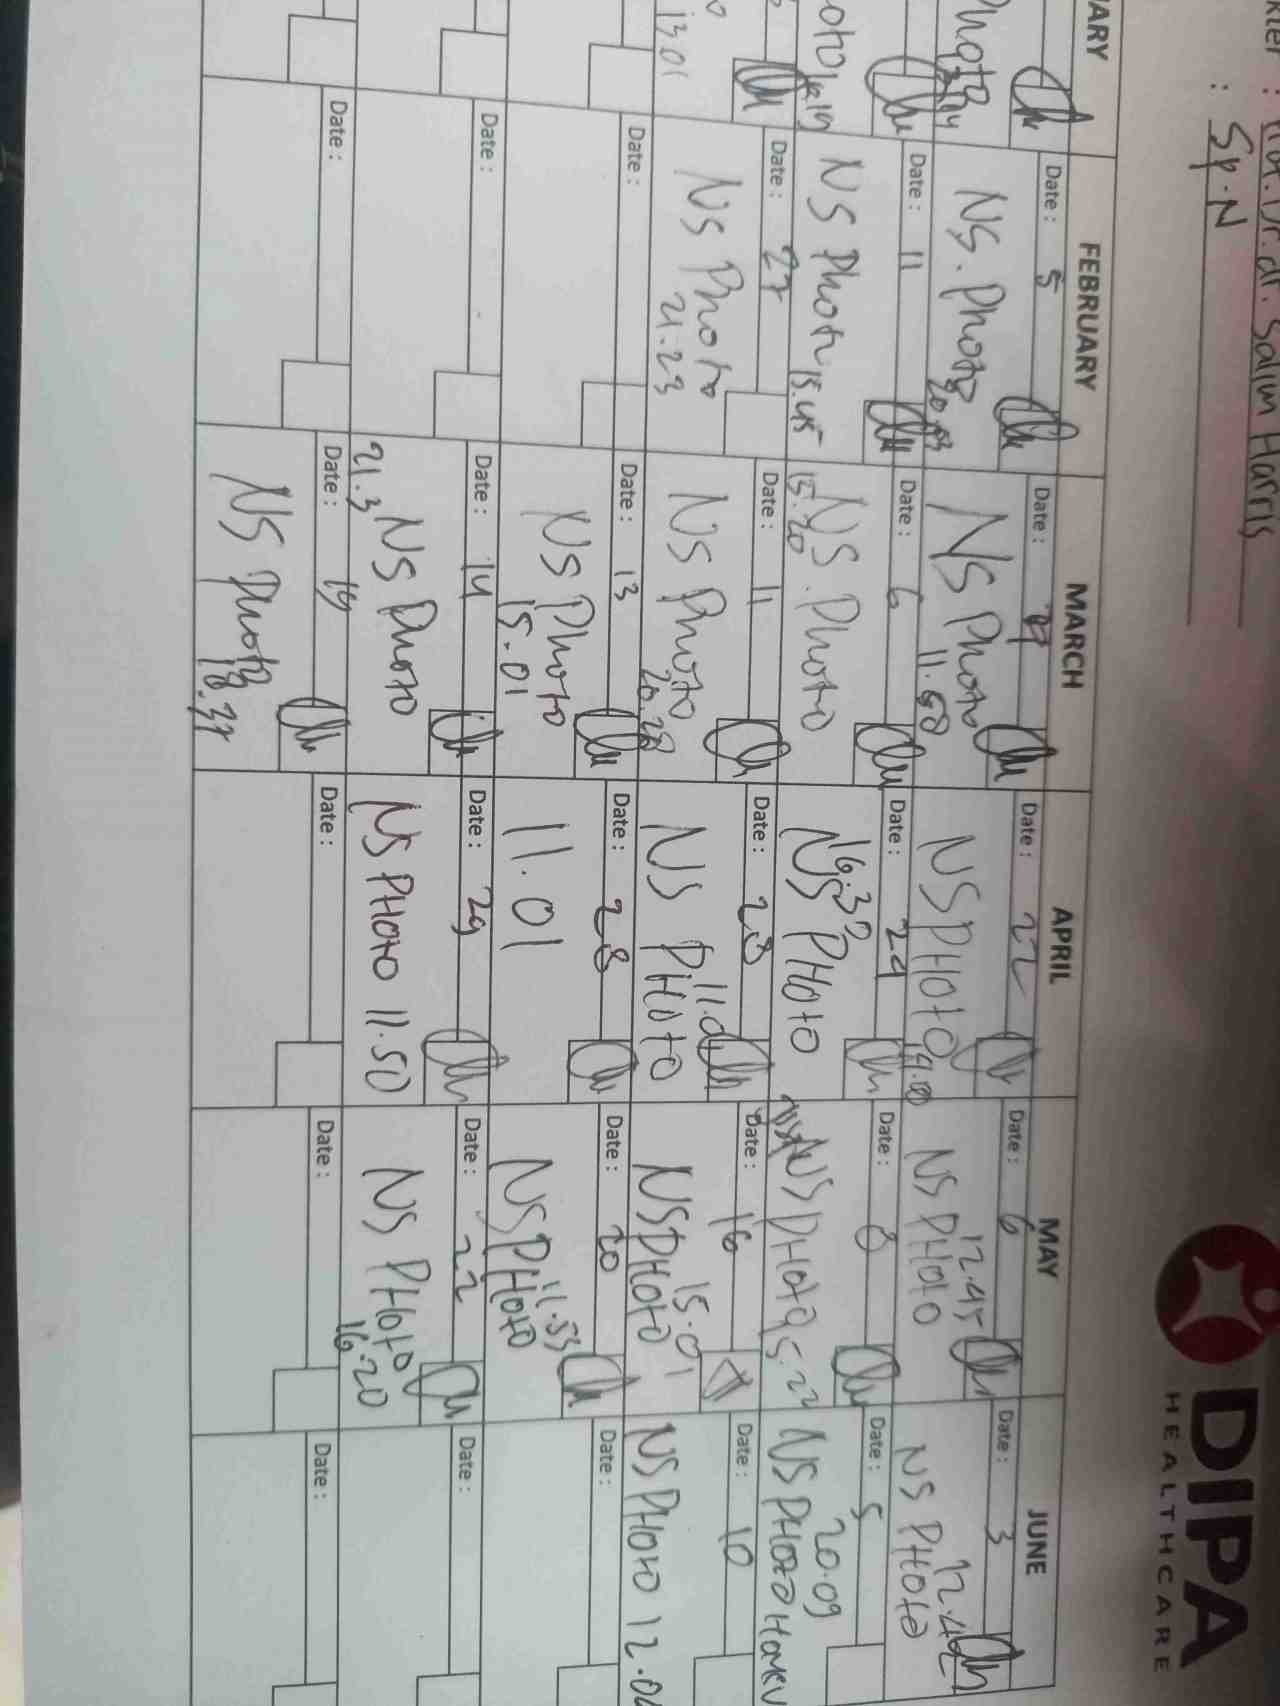 DIPA
HEALTHCARE
Dr. dr. Salim Harris
: Sp.N
FEBRUARY
MARCH
APRIL
MAY
JUNE
Date : 5
NS. Photo
Date :
NS Photo
11.50
Date : 22
NS PHOTO
Date : 6
12.45
NS PHOTO
Date : 3
12.42
NS PHOTO
Date : 11
NS Photo
15.45
Date : 6
NS. Photo
15.20
Date : 24
16.32
NS PHOTO
Date : 8
NS PHOTO
Date : 5
20.09
NS PHOTO
13.01
Date : 27
NS Photo
21.23
Date : 11
NS Photo
20.28
Date : 28
11.01
NS PHOTO
Date : 16
15.01
NS PHOTO
Date : 10
NS PHOTO
Date :
Date : 13
NS Photo
15.01
Date : 28
11.01
Date : 20
11.53
NS PHOTO
Date :
Date :
Date : 14
NS Photo
21.3
Date : 29
NS PHOTO 11.50
Date : 22
NS PHOTO
16.20
Date :
Date :
Date : 19
NS Photo
18.37
Date :
Date :
Date :